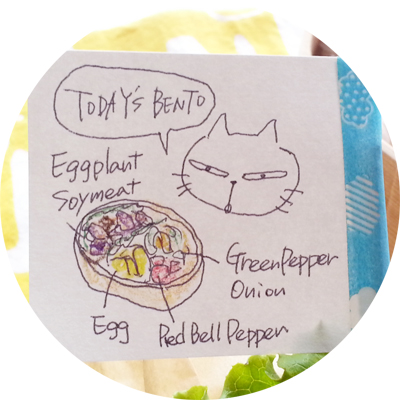 TODAY'S BENTO
Eggplant
Soymeat
GreenPepper
Onion
Egg
Red Bell Pepper